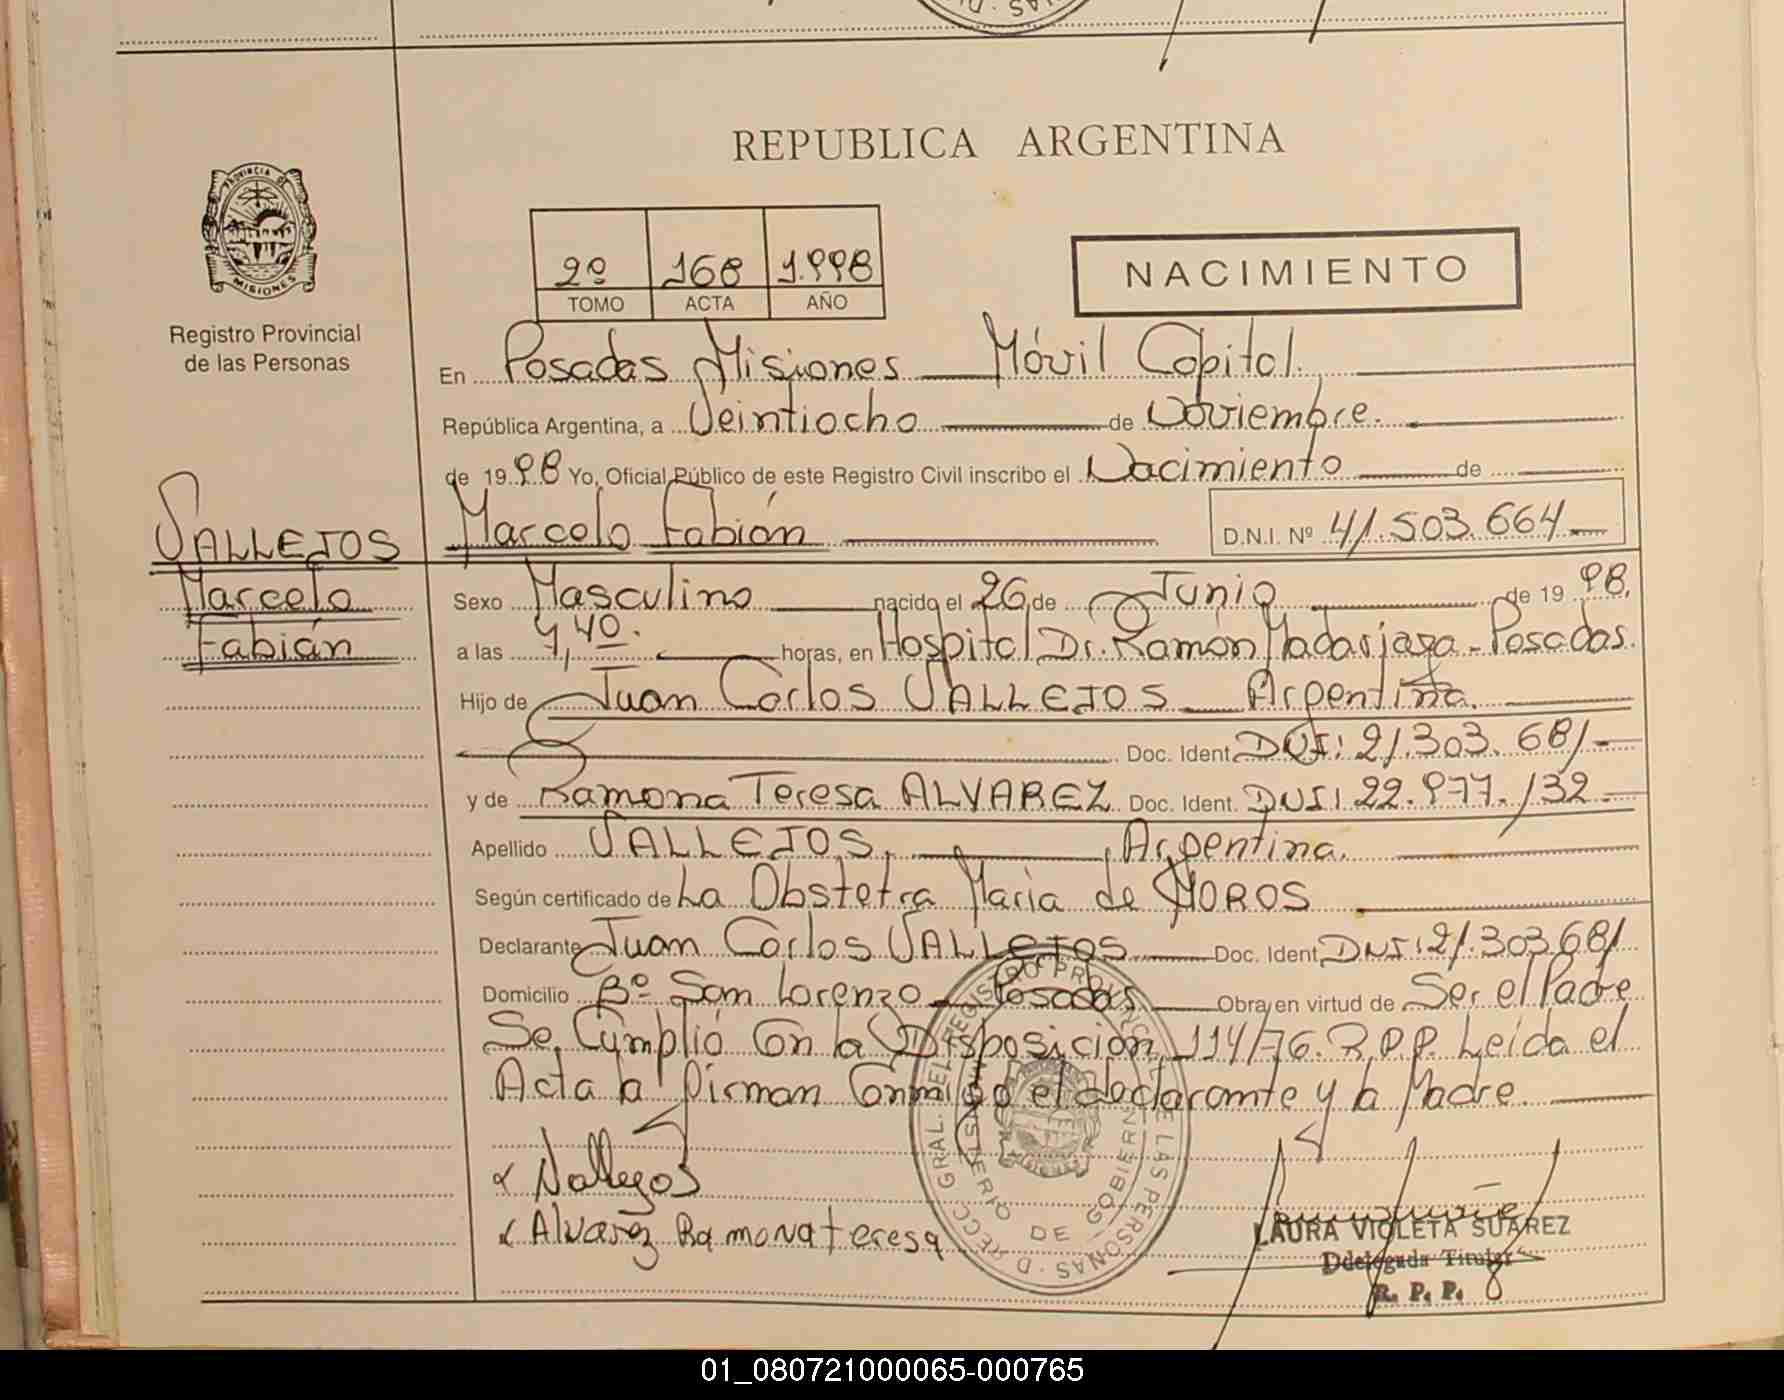 REPUBLICA ARGENTINA
PROVINCIA DE
MISIONES
Registro Provincial
de las Personas
2º 168 1.998
TOMO ACTA AÑO
NACIMIENTO
En Posadas Misiones Móvil Capital.
República Argentina, a Veintiocho de Noviembre.
de 1998 Yo, Oficial Público de este Registro Civil inscribo el Nacimiento de
VALLEJOS Marcelo Fabián D.N.I. Nº 41.503.664
Marcelo
Fabián
Sexo Masculino nacido el 26 de Junio de 19 98.
a las 4,40. horas, en Hospital Dr. Ramón Madariaga - Posadas.
Hijo de Juan Carlos VALLEJOS Argentina.
Doc. Ident. DNI: 21.303.681
y de Ramona Teresa ALVAREZ Doc. Ident. DNI: 22.977.132
Apellido VALLEJOS, Argentina.
Según certificado de La Obstetra Maria de MOROS
Declarante Juan Carlos VALLEJOS Doc. Ident. DNI: 21.303681
Domicilio Bº San Lorenzo Posadas Obra en virtud de Ser el Padre
Se Cumplió Con la Disposición 114/76. R.P.P. Leída el
Acta la firman Conmigo el declarante y la Madre.
Vallejos
Alvarez Ramona teresa
LAURA VIOLETA SUAREZ
Ddelegada Titular
R. P. P.
01_080721000065-000765